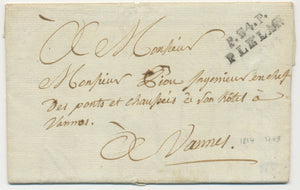 P.54.P.
PLELAN
À Monsieur
Monsieur Piou Ingenieur en chef
Des ponts et chaussées à son hôtel à
Vannes.
À Vannes.
1814